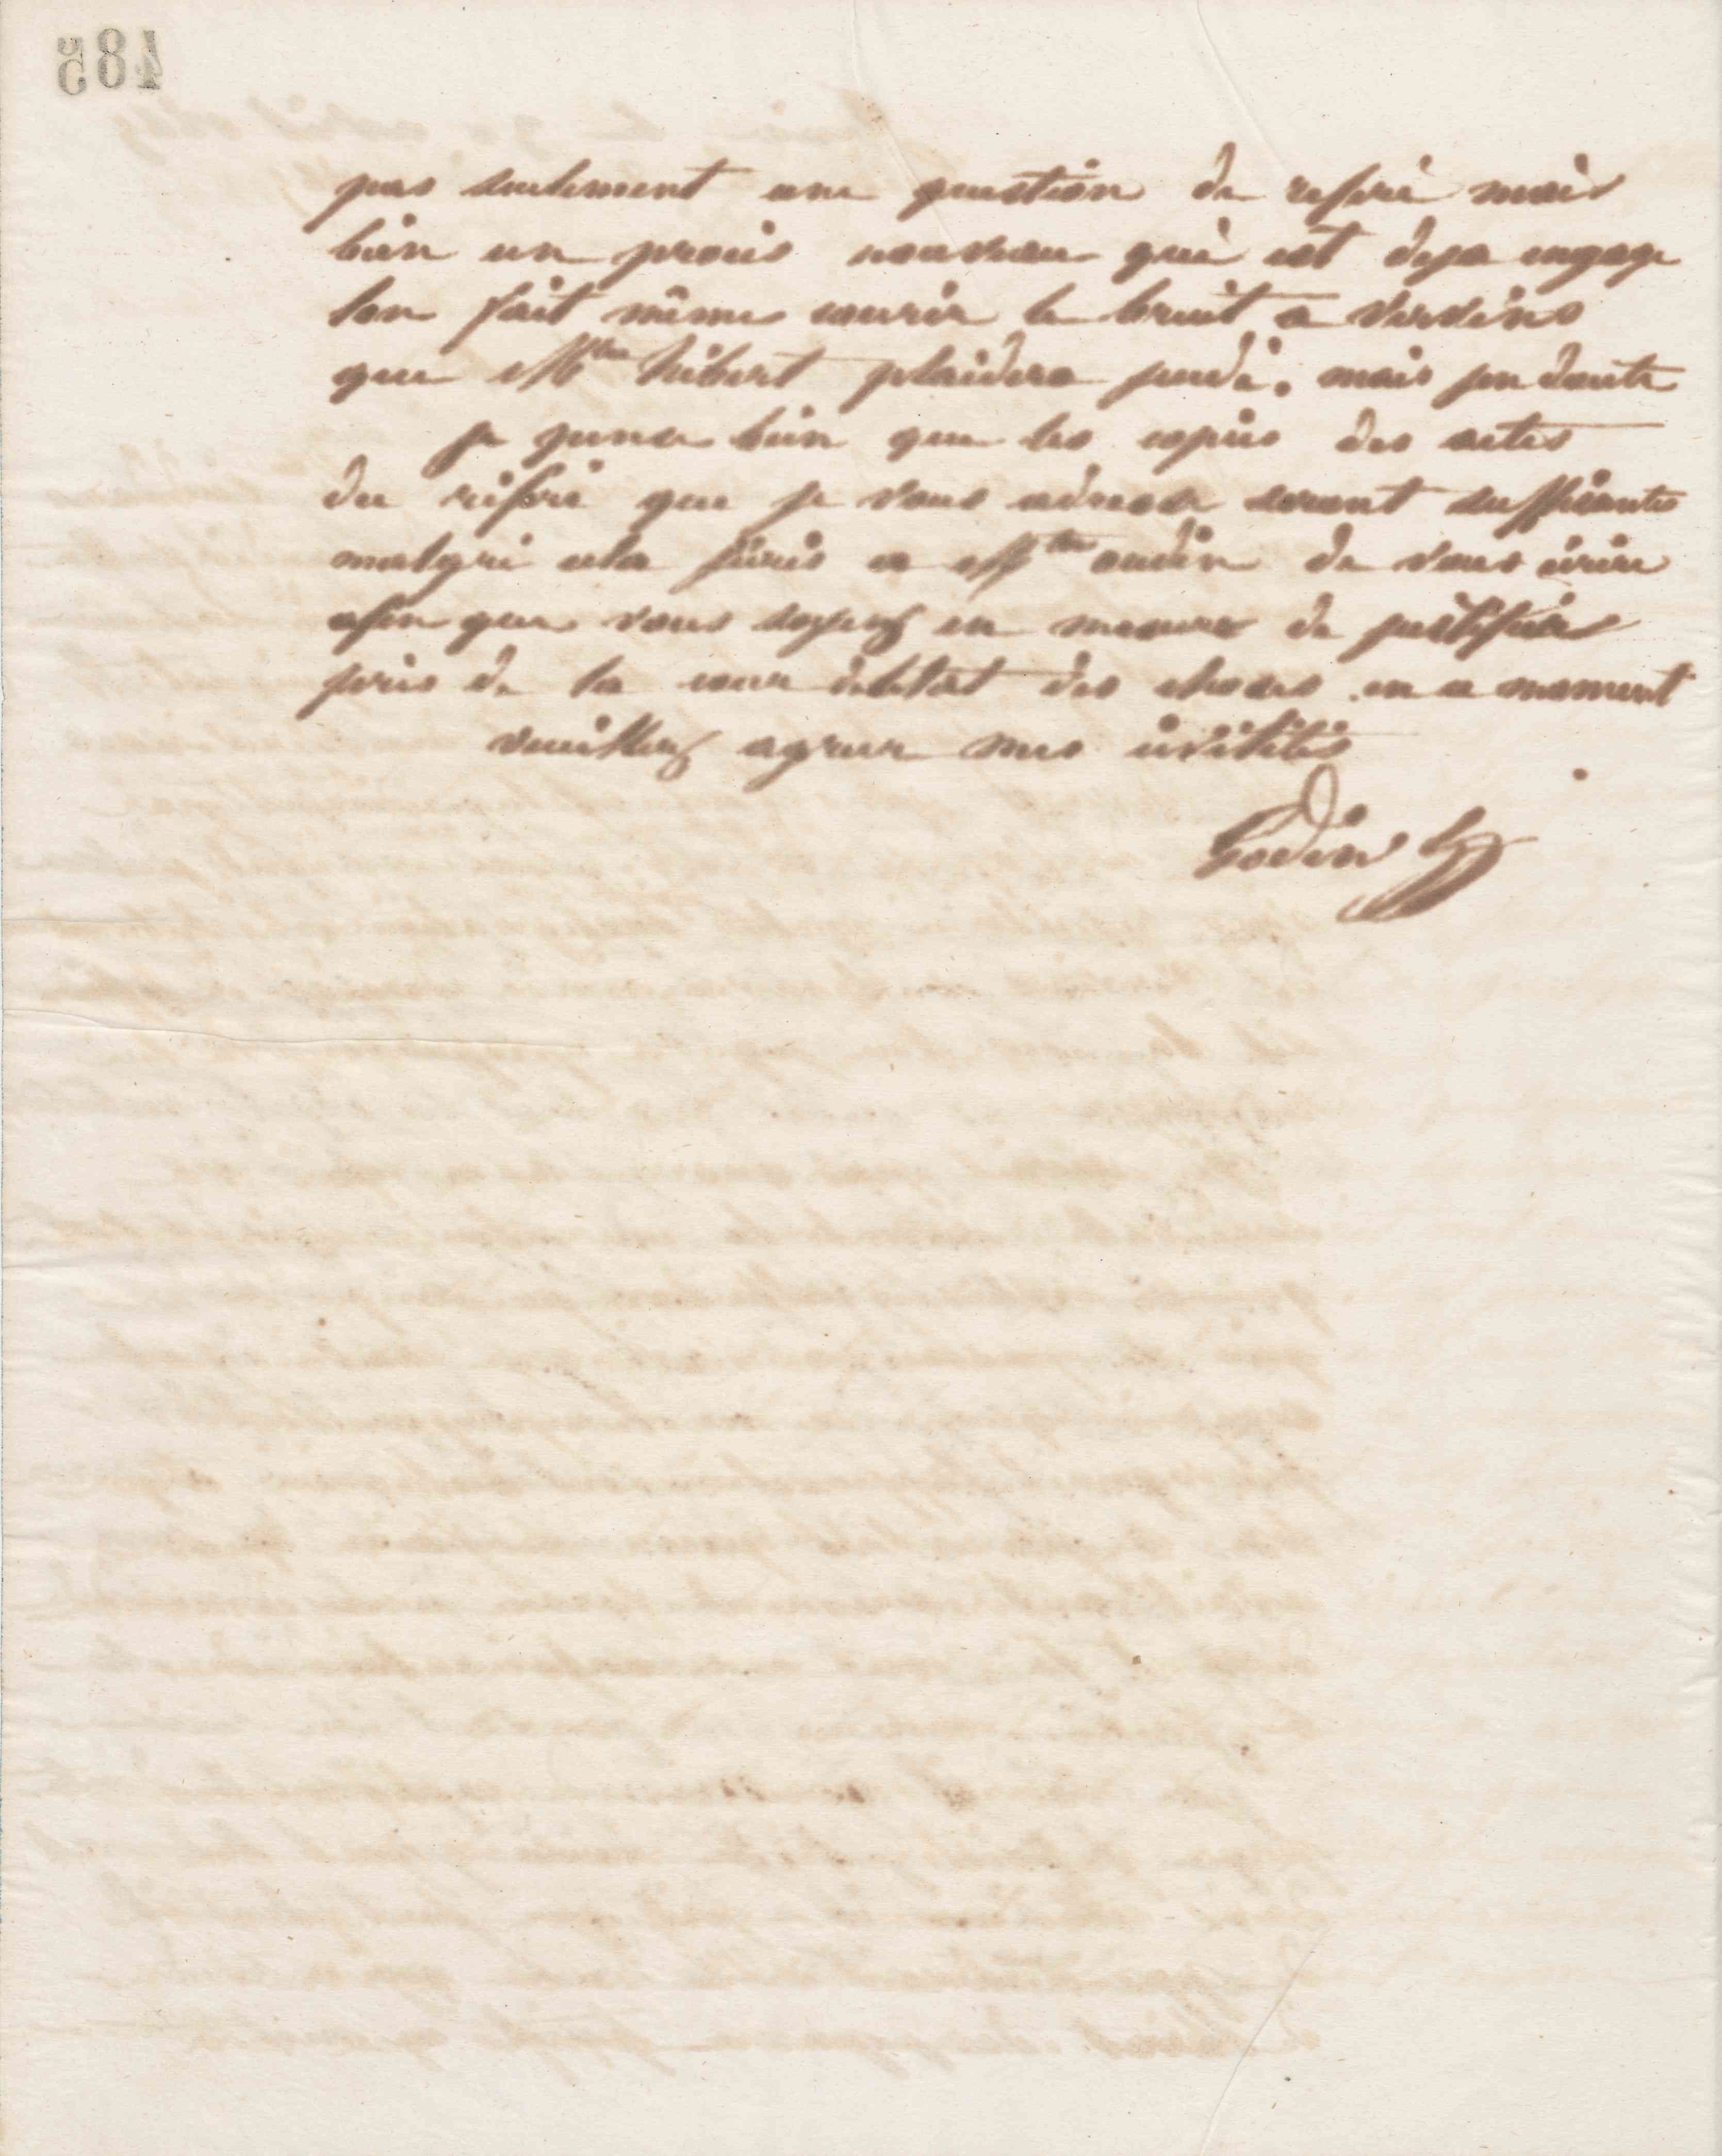 485
pas seulement une question de referé mais
bien un procès nouveau qui est deja engagé
lon fait même courir le bruit a Vervins
que Mtre hébert plaidera jeudi. mais jen doute
je pense bien que les copies des actes
du référé que je vous adresse seront suffisantes
malgré cela jécris a Mtre oudin de vous écrire
afin que vous soyez en mesure de justifier
près de la cour de létat des choses en ce moment
veuillez agréer mes civilités
Godin